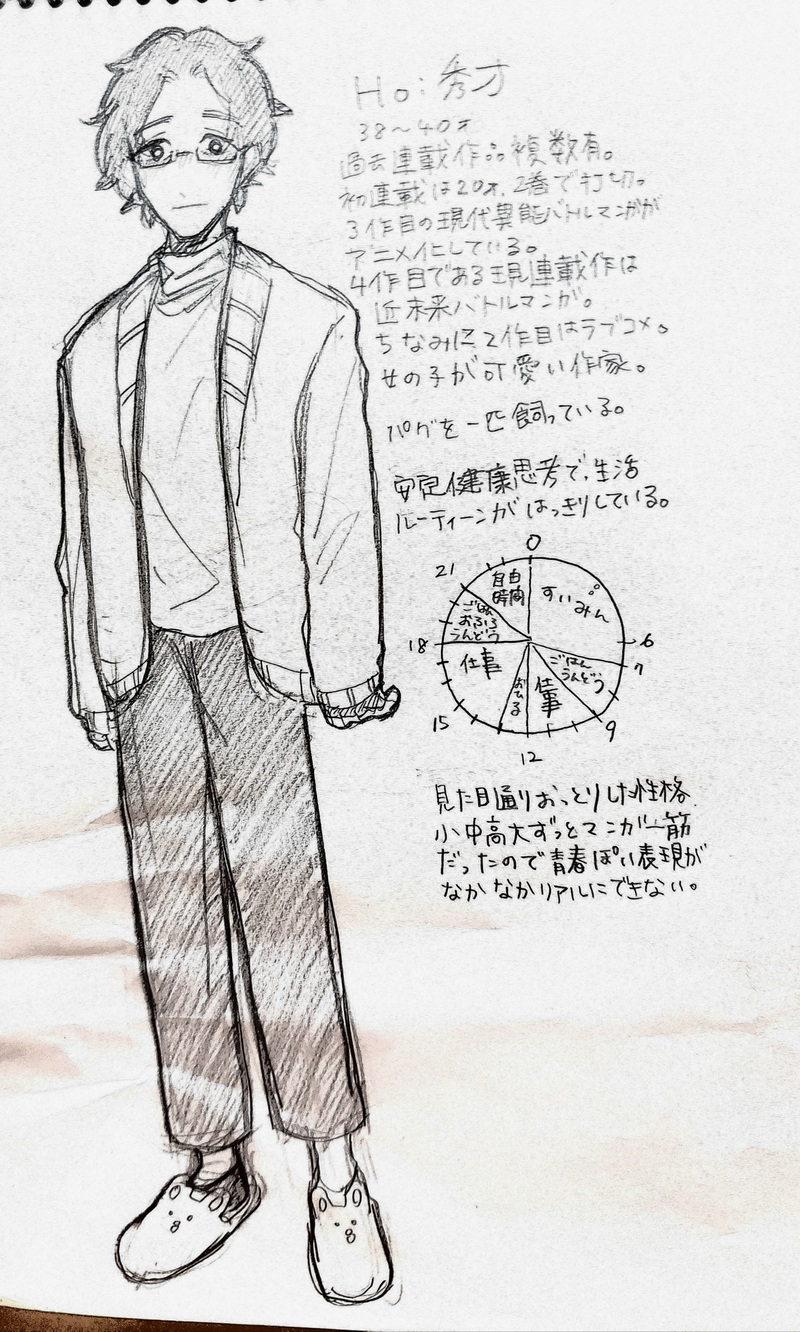 Ho:秀才
38〜40才
過去連載作品複数有。
初連載は20才、2巻で打切。
3作目の現代異能バトルマンガが
アニメ化している。
4作目である現連載作は
近未来バトルマンガ。
ちなみに2作目はラブコメ。
女の子が可愛い作家。
パグを一匹飼っている。
安定健康思考で、生活
ルーティーンがはっきりしている。
0
21
自由
時間
すいみん
ごはん
おふろ
うんどう
18
6
7
仕事
ごはん
うんどう
おひる
仕事
15
9
12
見た目通りおっとりした性格
小中高大ずっとマンガ一筋
だったので青春ぽい表現が
なかなかリアルにできない。